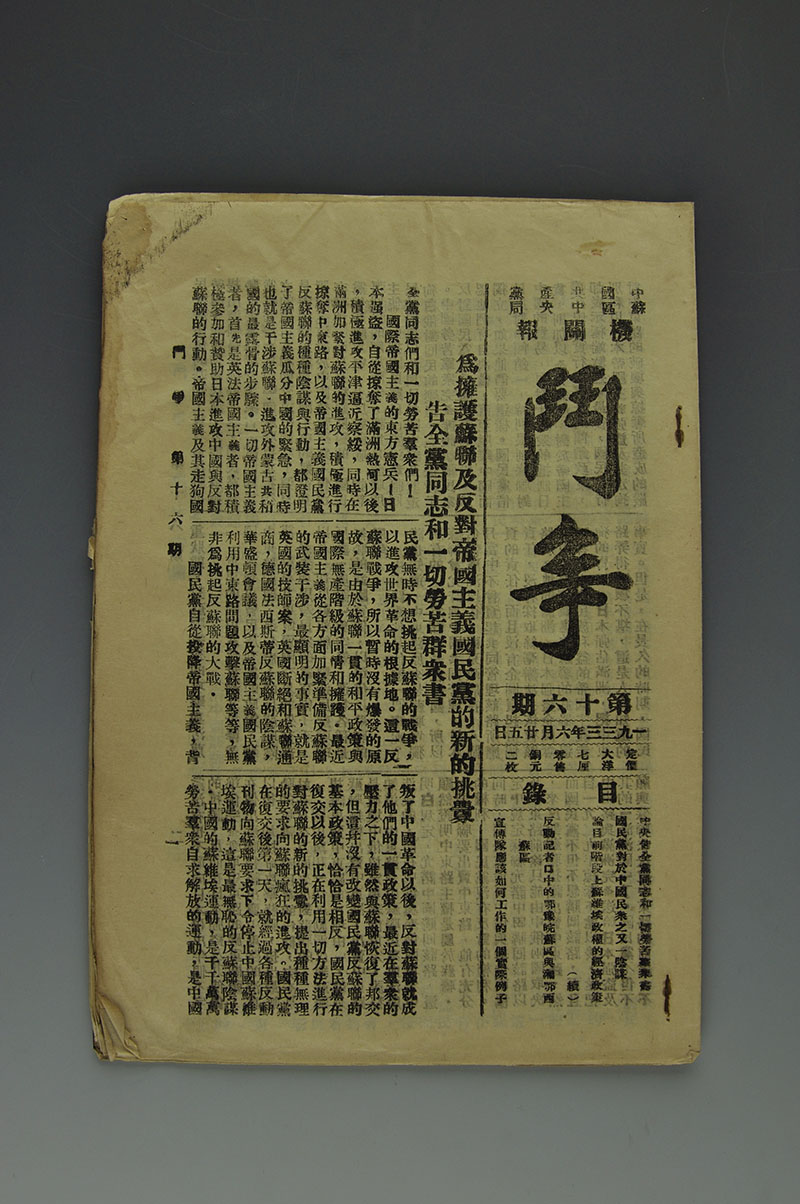 蘇區中央局
中國共產黨
機關報
鬥爭
第十六期
一九三三年六月廿五日
定價大洋七厘
零售銅元二枚
目錄
中央告全黨同志和一切勞苦羣衆書
國民黨對於中國民衆之又一陰謀
論目前階段上蘇維埃政權的經濟政策
(續)
反動記者口中的鄂豫皖蘇區與湘鄂西
蘇區
宣傳隊應該如何工作的一個實際例子
爲擁護蘇聯及反對帝國主義國民黨的新的挑釁
告全黨同志和一切勞苦群衆書
全黨同志們和一切勞苦羣衆們!
國際帝國主義的東方憲兵!日
本強盜,自從掠奪了滿洲熱河以後
,積極進攻平津逼近察綏,同時在
滿洲加緊對蘇聯的進攻,積極進行
掠奪中東路,以及帝國主義國民黨
反蘇聯的種種陰謀與行動,都證明
了帝國主義瓜分中國的緊急,同時
也就是干涉蘇聯、進攻外蒙古共和
國的最露骨的步驟。一切帝國主義
者,首先是英法帝國主義者,都積
極參加和贊助日本進攻中國與反對
蘇聯的行動。帝國主義及其走狗國
民黨無時不想挑起反蘇聯的戰爭,
以進攻世界革命的根據地。這一反
蘇聯戰爭,所以暫時沒有爆發的原
故,是由於蘇聯一貫的和平政策與
國際無產階級的同情和擁護。最近
帝國主義從各方面加緊準備反蘇聯
的武裝干涉,最顯明的事實,就是
英國的技師案,英國斷絕和蘇聯通
商,德國法西斯蒂反蘇聯的陰謀,
華盛頓會議,以及帝國主義國民黨
利用中東路問題攻擊蘇聯等等,無
非爲挑起反蘇聯的大戰。
國民黨自從投降帝國主義,背
叛了中國革命以後,反對蘇聯就成
了他們的一貫政策,最近在羣衆的
壓力之下,雖然與蘇聯恢復了邦交
,但這并沒有改變國民黨反蘇聯的
基本政策,恰恰是相反,國民黨在
復交以後,正在利用一切方法進行
對蘇聯的新的挑釁,提出種種無理
的要求向蘇聯瘋狂的進攻。國民黨
在復交後第一天,就經過各種反動
刊物向蘇聯要求下令停止中國蘇維
埃運動,這是最無恥的反蘇聯陰謀
。中國的蘇維埃運動,是千千萬萬
勞苦羣衆自求解放的運動,是中國
鬥爭 第十六期 一